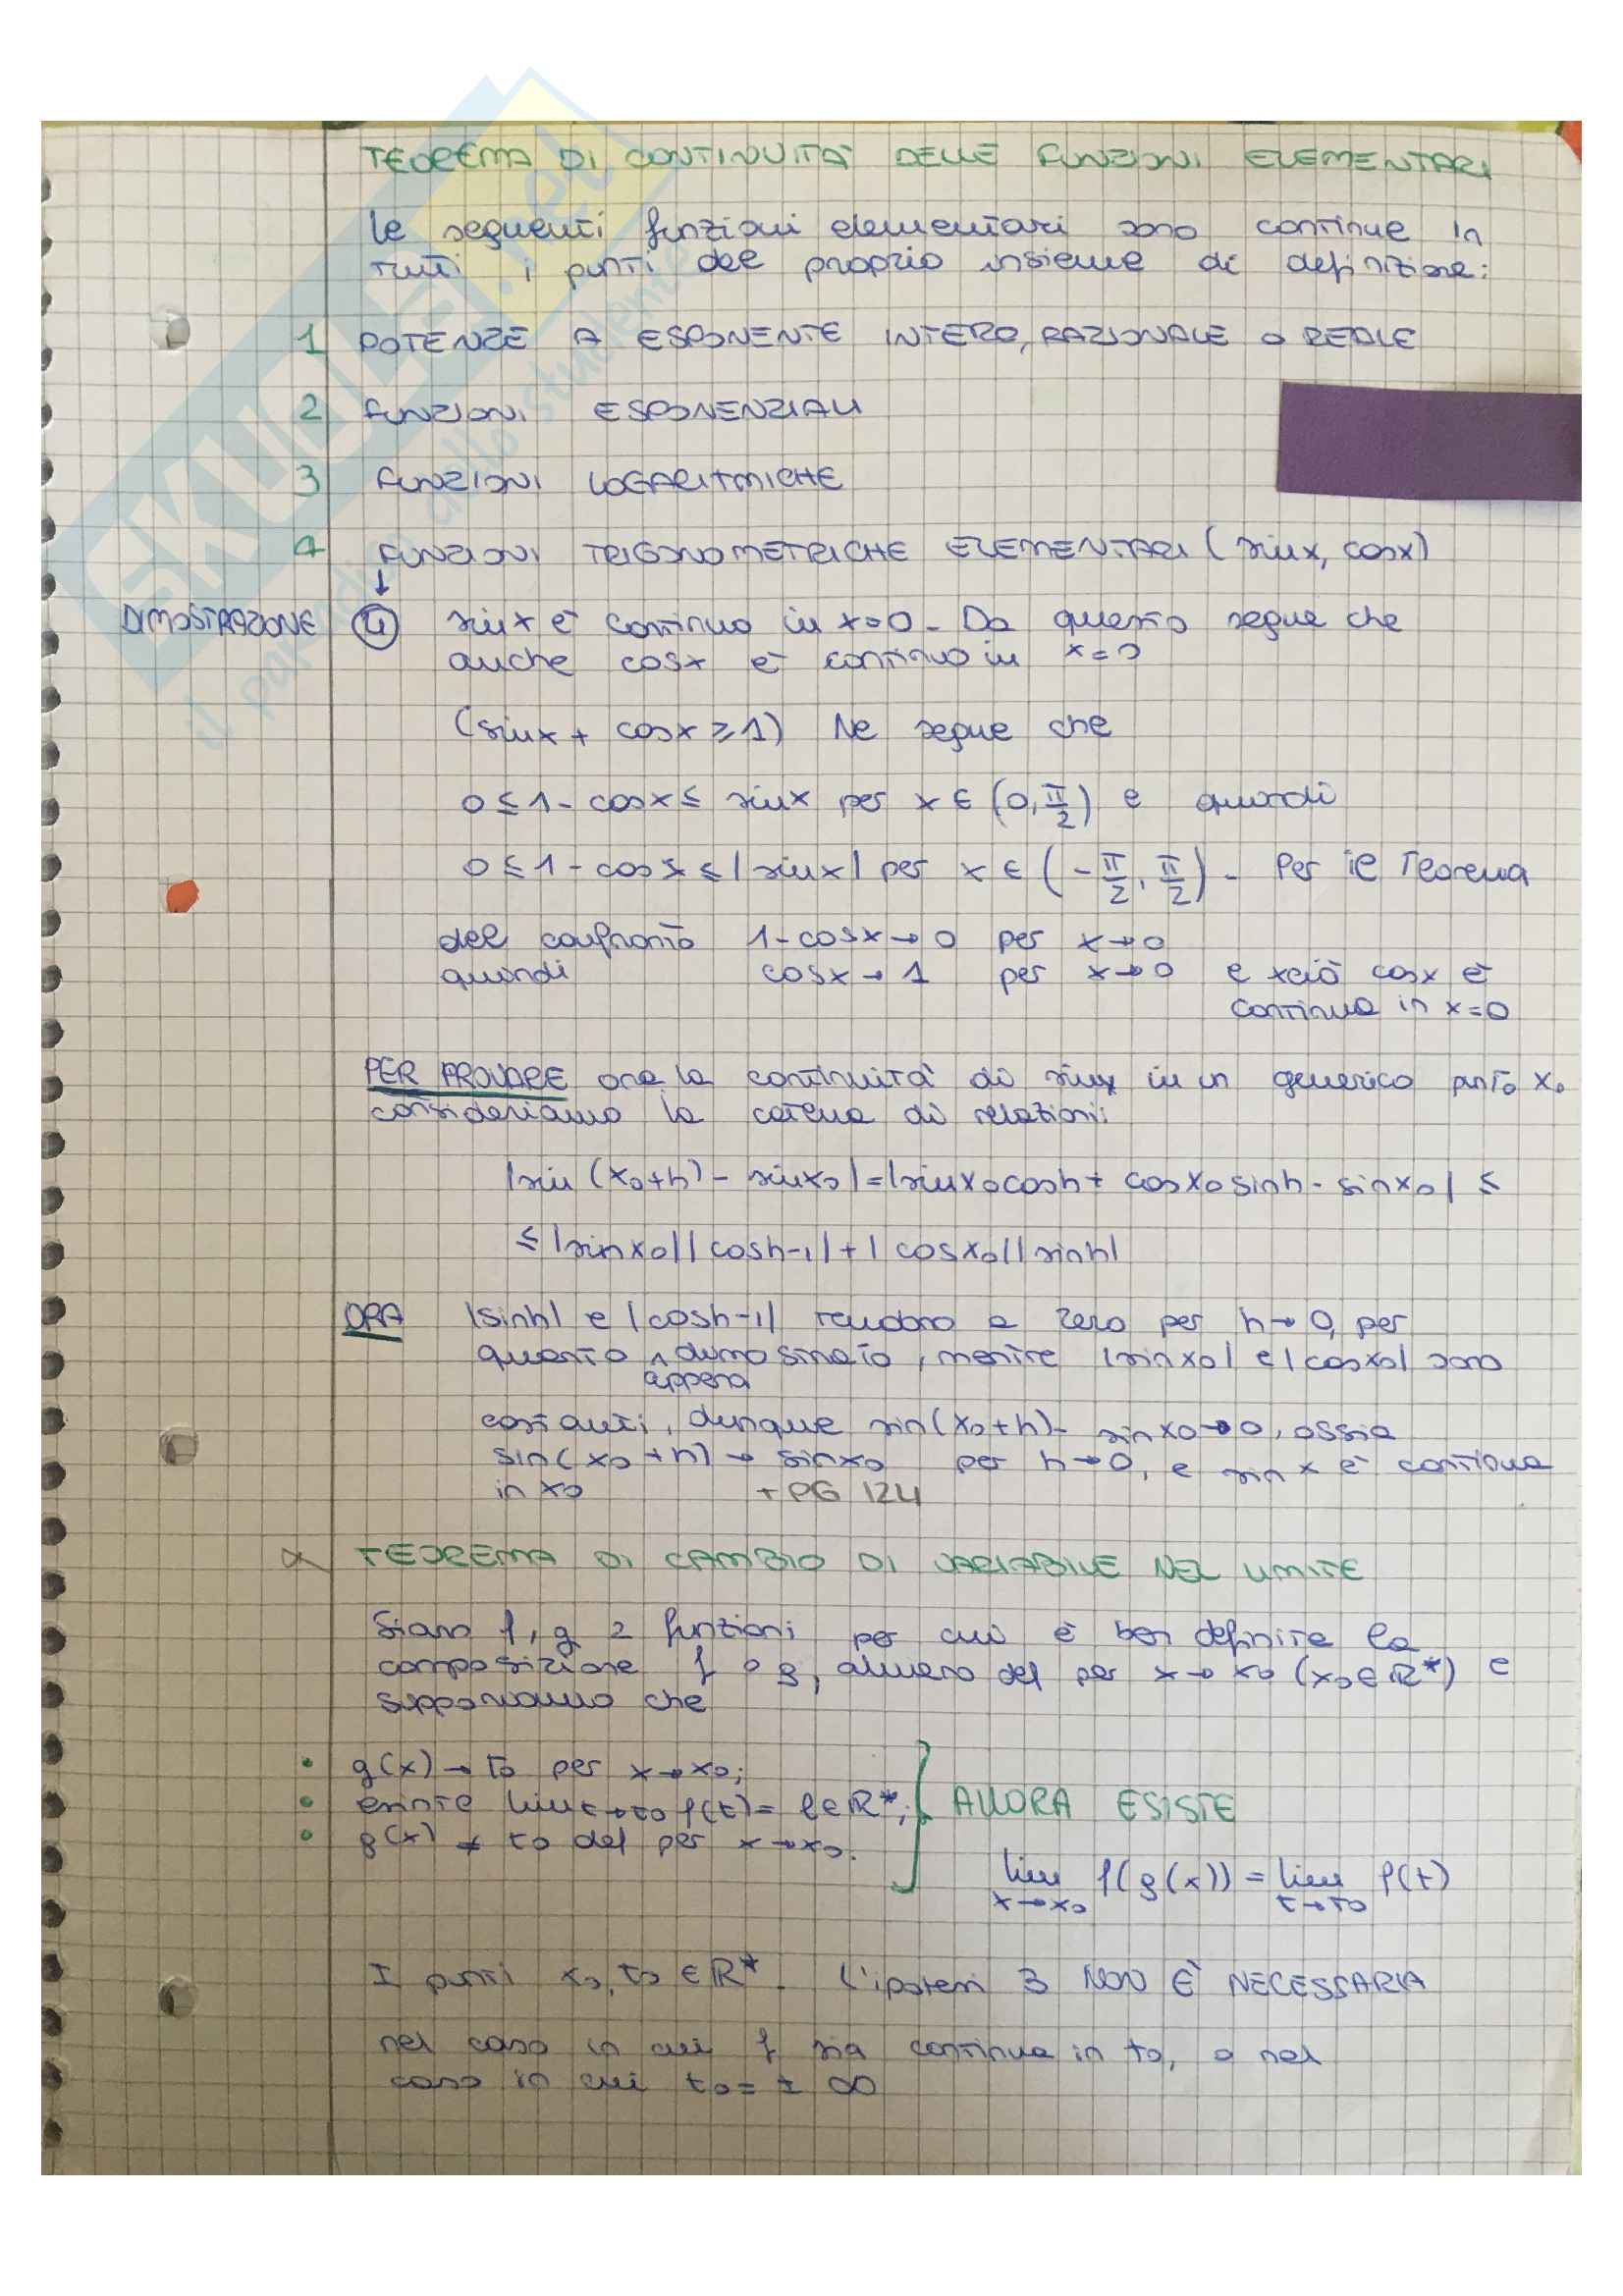 TEOREMA DI CONTINUITÀ DELLE FUNZIONI ELEMENTARI
le seguenti funzioni elementari sono continue in
tutti i punti del proprio insieme di definizione:
1 POTENZE A ESPONENTE INTERO, RAZIONALE O REALE
2 FUNZIONI ESPONENZIALI
3 FUNZIONI LOGARITMICHE
4 FUNZIONI TRIGONOMETRICHE ELEMENTARI (sinx, cosx)
↓
DIMOSTRAZIONE ④ sinx è continuo in x=0. Da questo segue che
anche cosx è continuo in x=0
(sinx + cosx ≥ 1) Ne segue che
0 ≤ 1 - cosx ≤ sinx per x ∈ (0, π/2) e quindi
0 ≤ 1 - cosx ≤ |sinx| per x ∈ (-π/2, π/2). Per il Teorema
del confronto 1-cosx → 0 per x → 0
quindi cosx → 1 per x → 0 e xciò cosx è
continua in x=0
PER PROVARE ora la continuità di sinx in un generico punto x₀
consideriamo la catena di relazioni:
|sin (x₀+h) - sinx₀| = |sinx₀cosh + cosx₀sinh - sinx₀| ≤
≤ |sinx₀||cosh-1| + |cosx₀||sinh|
ORA |sinh| e |cosh-1| tendono a zero per h → 0, per
quanto ∧ dimostrato, mentre |sinx₀| e |cosx₀| sono
appena
costanti, dunque sin(x₀+h) - sinx₀ → 0, ossia
sin(x₀+h) → sinx₀ per h → 0, e sinx è continua
in x₀ + PG 124
α TEOREMA DI CAMBIO DI VARIABILE NEL LIMITE
Siano f, g 2 funzioni per cui è ben definite la
composizione f ∘ g, almeno def per x → x₀ (x₀ ∈ ℝ*) e
supponiamo che
• g(x) → t₀ per x → x₀;
• esiste lim t→t₀ f(t) = l ∈ ℝ*; } ALLORA ESISTE
• g(x) ≠ t₀ def per x → x₀.
lim x→x₀ f(g(x)) = lim t→t₀ f(t)
I punti x₀, t₀ ∈ ℝ*. L'ipotesi 3 NON È NECESSARIA
nel caso in cui f sia continua in t₀, o nel
caso in cui t₀ = ± ∞
SKUOLA.net
il paradiso dello studente